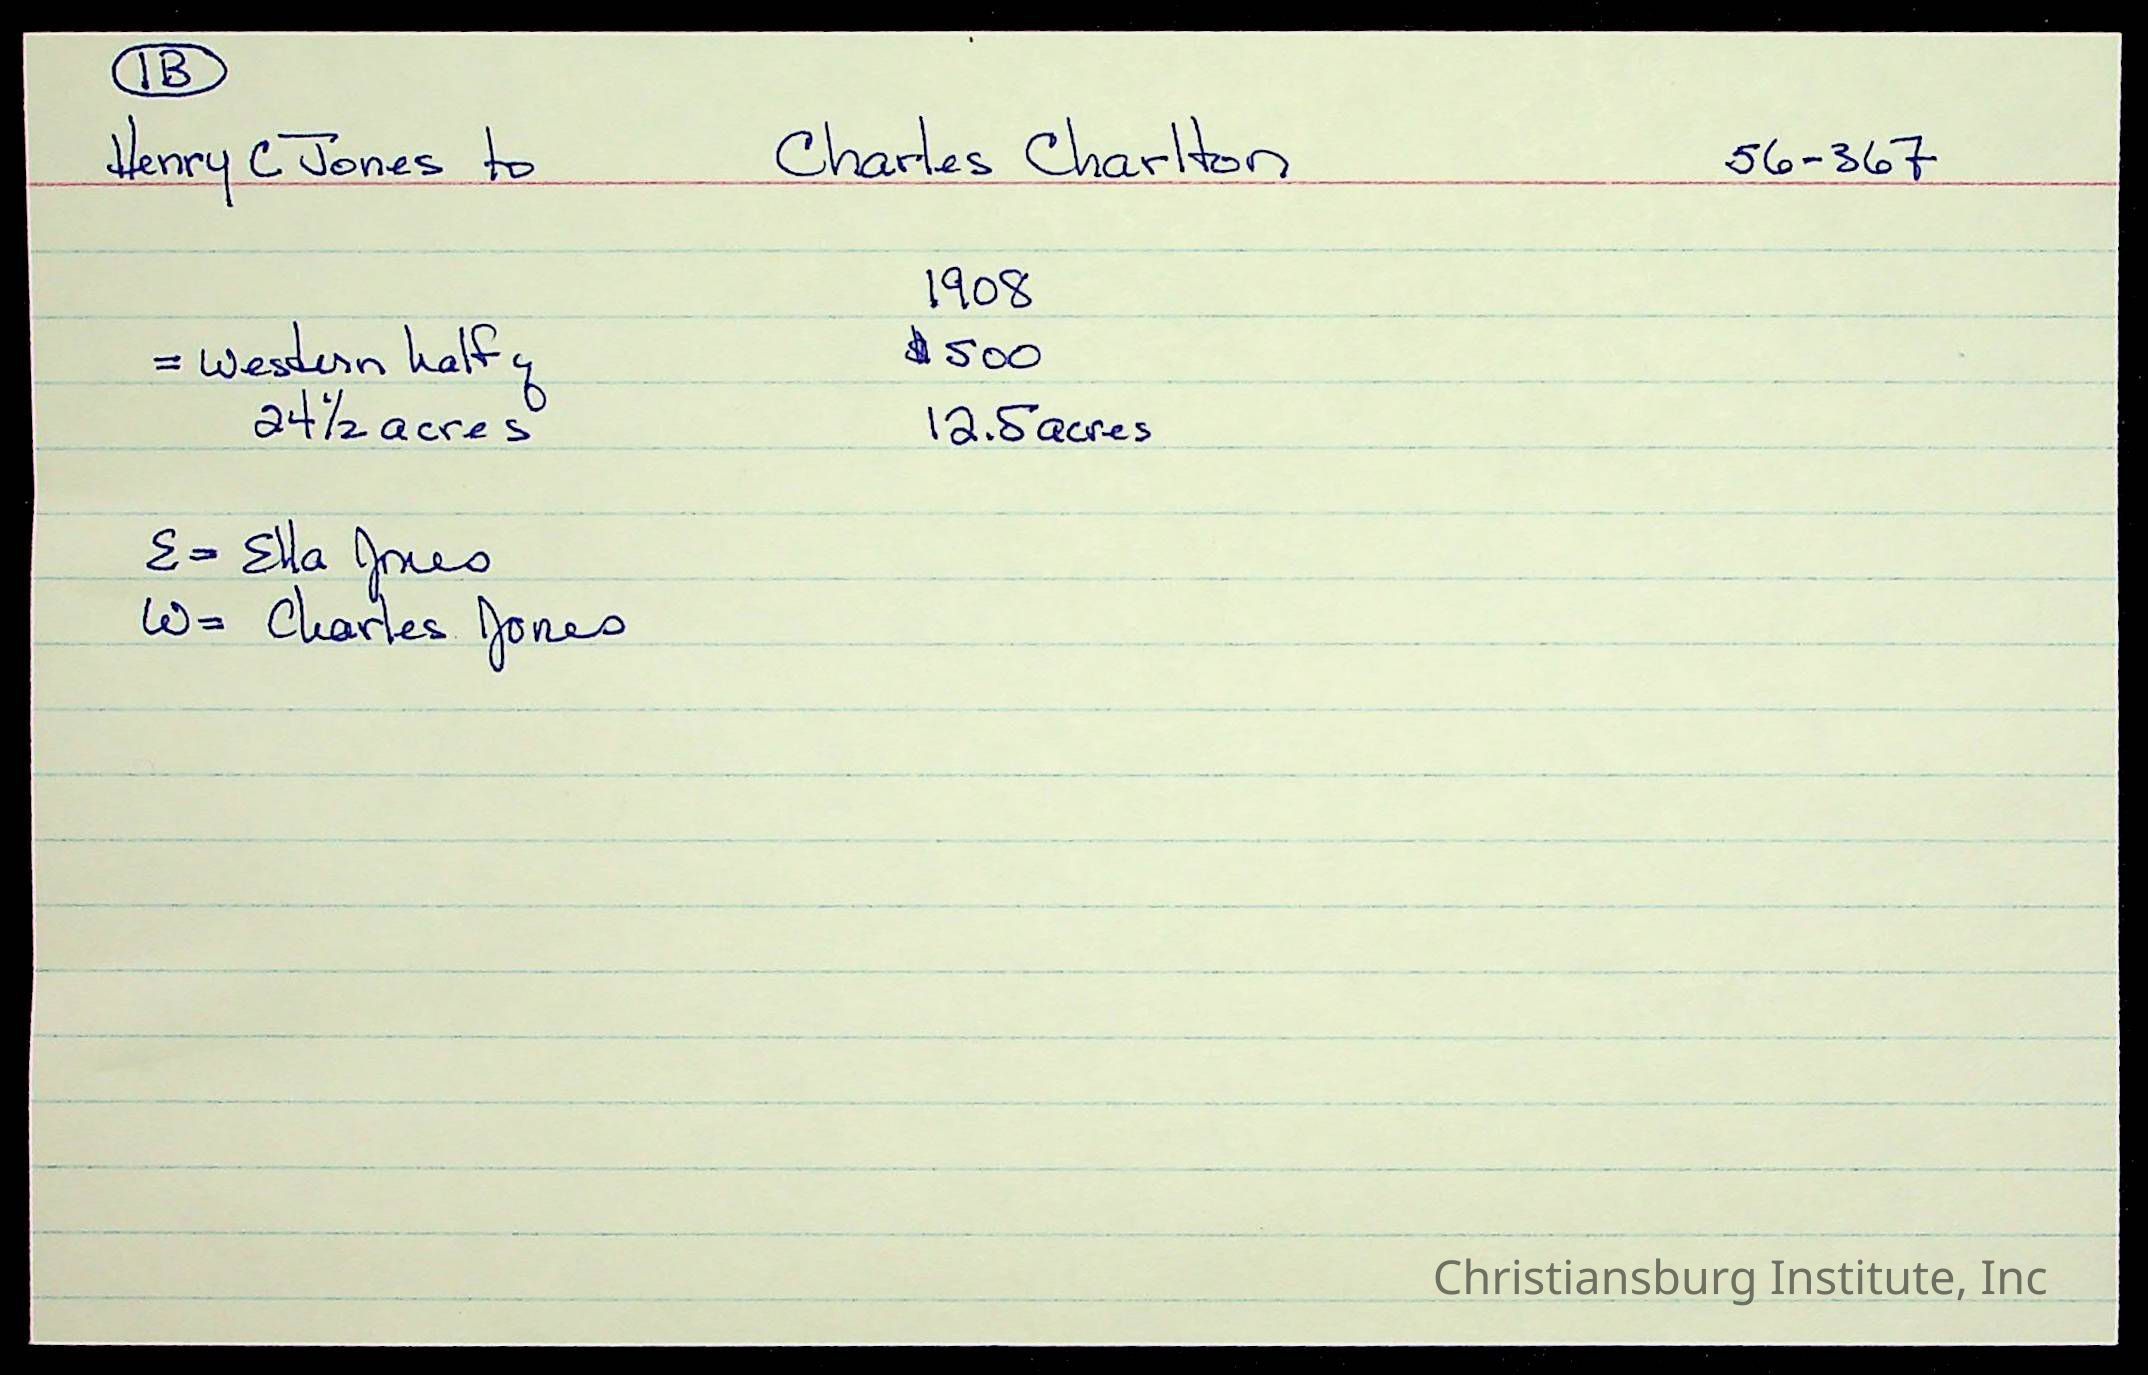 1B
Henry C Jones to Charles Charlton 56-367
1908
= Western half of $500
24 1/2 acres 12.5 acres
E = Ella Jones
W = Charles Jones
Christiansburg Institute, Inc